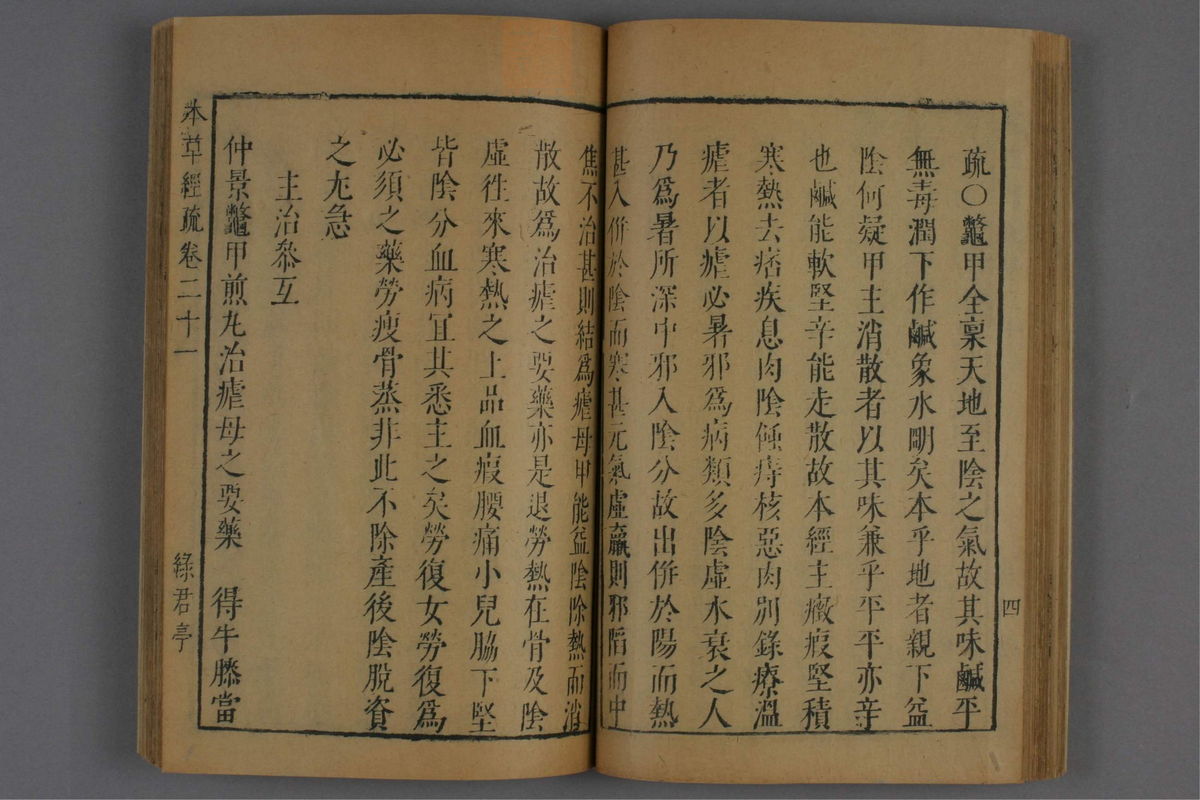 疏○鼈甲全稟天地至陰之氣故其味鹹平
無毒潤下作鹹象水明矣本乎地者親下益
陰何疑甲主消散者以其味兼乎平平亦辛
也鹹能軟堅辛能走散故本經主癥瘕堅積
寒熱去痞疾息肉陰蝕痔核惡肉別錄療溫
瘧者以瘧必暑邪爲病類多陰虛水衰之人
乃爲暑所深中邪入陰分故出併於陽而熱
甚入併於陰而寒甚元氣虛羸則邪陷而中
焦不治甚則結爲瘧母甲能益陰除熱而消
散故爲治瘧之要藥亦是退勞熱在骨及陰
虛徃來寒熱之上品血瘕腰痛小兒脇下堅
皆陰分血病宜其悉主之矣勞復女勞復爲
必須之藥勞瘦骨蒸非此不除產後陰脫資
之尢急
主治叅互
仲景鼈甲煎丸治瘧母之要藥　得牛膝當
四
本草經疏卷二十一
綠君亭